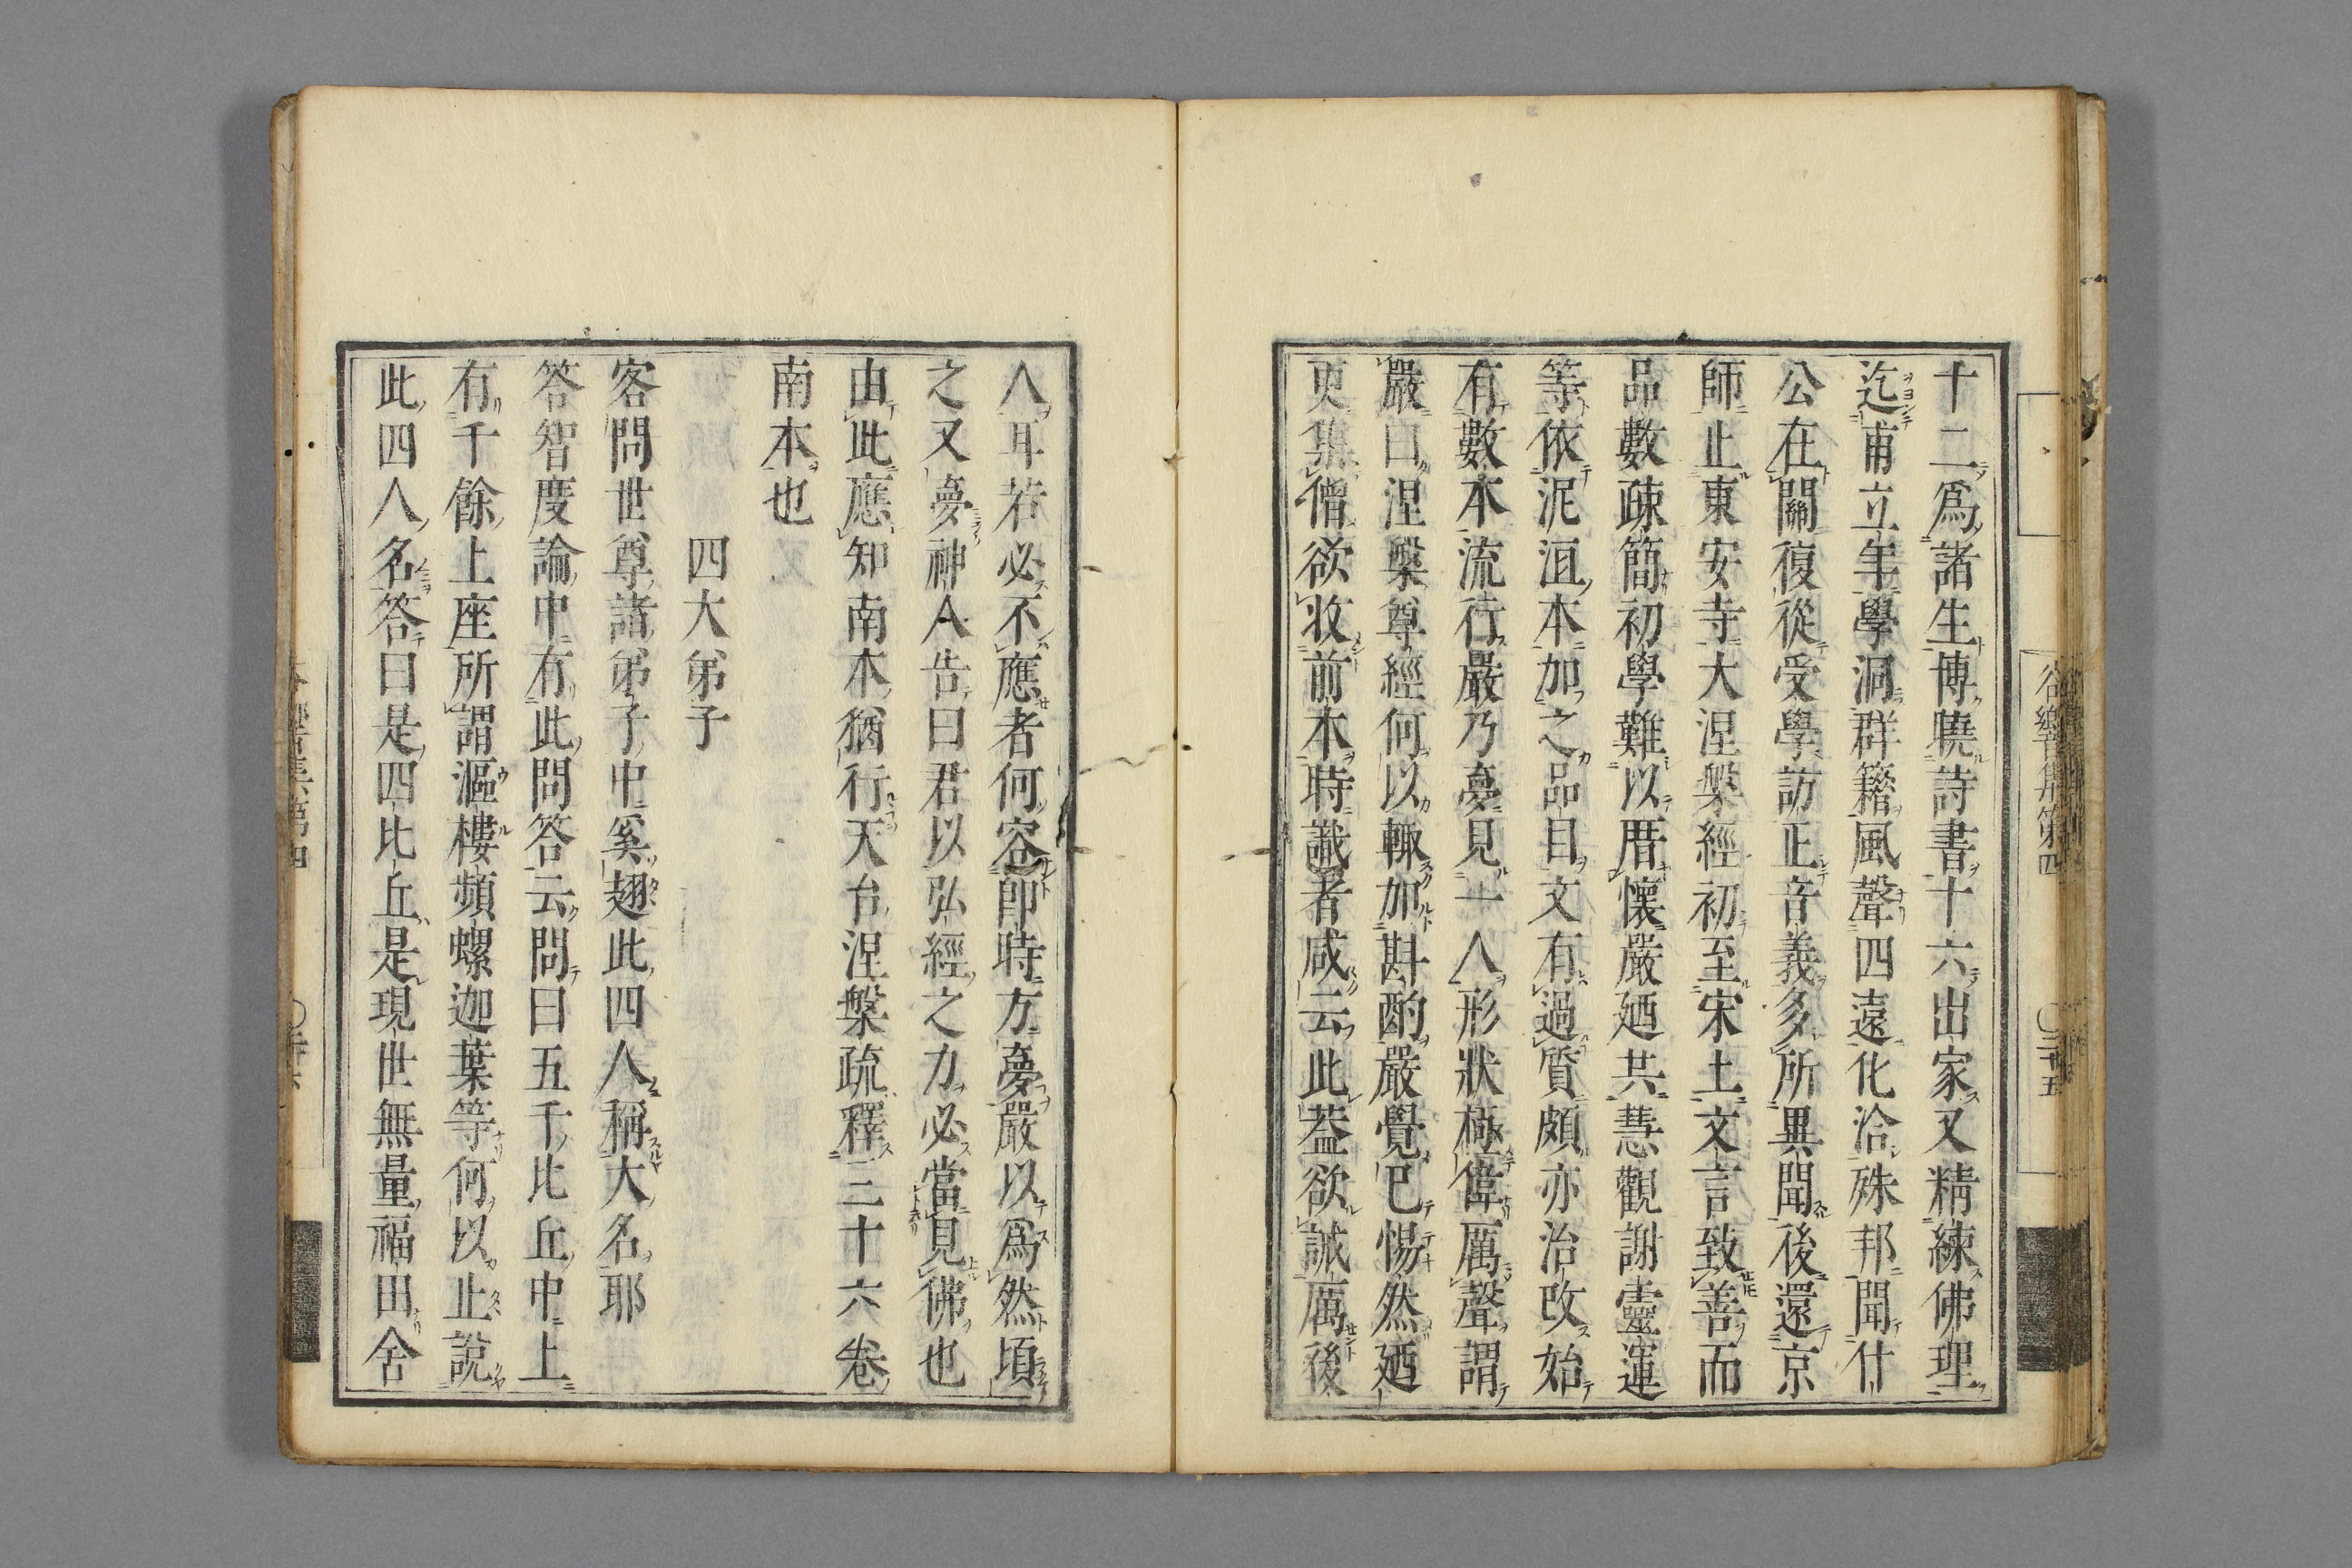 十二爲諸生博曉詩書十六出家又精練佛理
迄甫立年學洞群籍風聲四遠化洽殊邦聞什
公在關復從受學訪正音義多所異聞後還京
師止東安寺大涅槃經初至宋土文言致善而
品數疎簡初學難以厝懷嚴廼共慧觀謝靈運
等依泥洹本加之品目文有過質頗亦治改始
有數本流行嚴乃夢見一人形狀極偉厲聲謂
嚴曰涅槃尊經何以輙加斟酌嚴覺已惕然廼
更集僧欲收前本時識者咸云此葢欲誡厲後
人耳若必不應者何容卽時方夢嚴以爲然頃
之又夢神人告曰君以弘經之力必當見佛也
由此應知南本猶行天台涅槃疏釋三十六卷
南本也
四大弟子
客問世尊諸弟子中奚翅此四人稱大名耶
答智度論中有此問答云問曰五千比丘中上
有千餘上座所謂漚樓頻螺迦葉等何以止說
此四人名答曰是四比丘是現世無量福田舍
谷響集第四
〇三十五